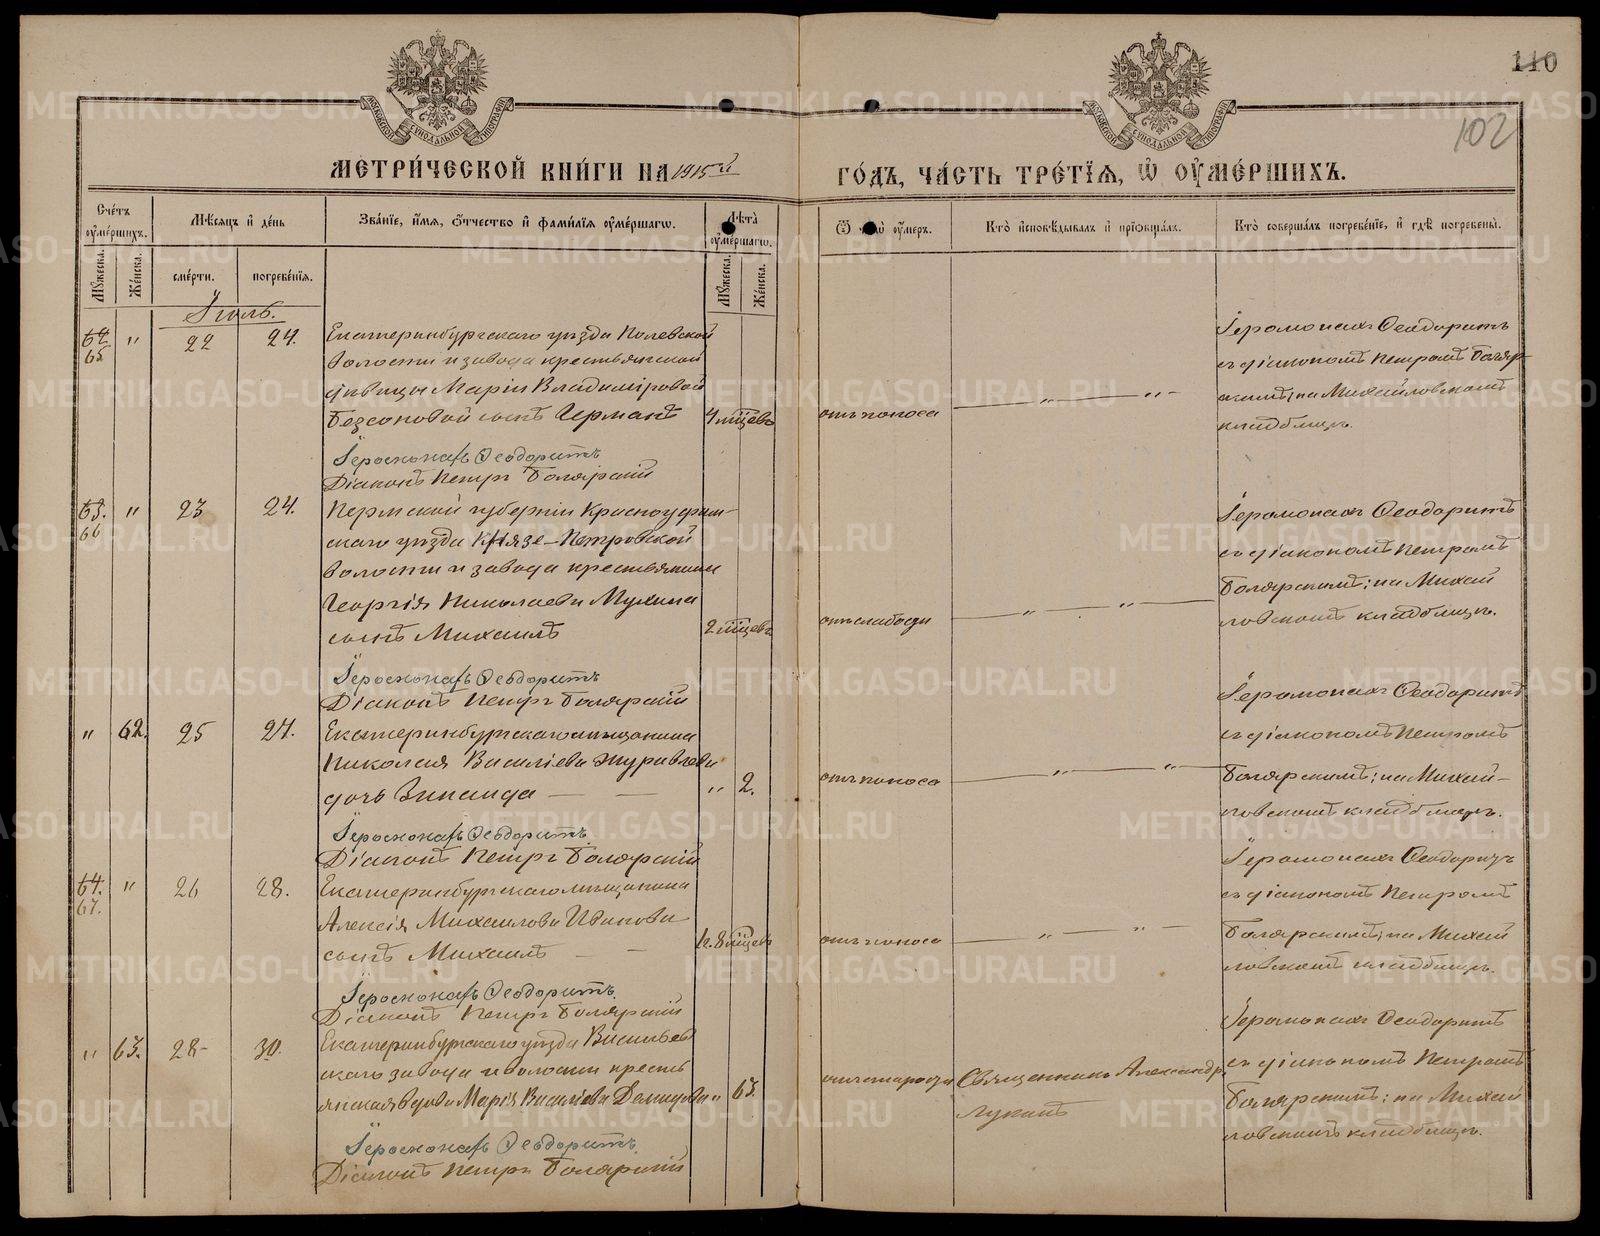 110
102
МЕТРИ́ЧЕСКОЙ КНИ́ГИ НА 1915й
ГО́ДЪ, ЧА́СТЬ ТРЕ́ТІѦ, Ѿ ОУМЕ́РШИХЪ.
МОСКОВСКОЙ СѴНОДАЛЬНОЙ ТИПОГРАФІИ
МОСКОВСКОЙ СѴНОДАЛЬНОЙ ТИПОГРАФІИ
Сче́тъ оуме́ршихъ.
Мѣ́сяцъ и де́нь
Зва́ніе, и́мя, ѻ́тчество и фами́лія оуме́ршагѡ.
Лѣ́та оуме́ршагѡ.
Ѿ чегѡ̀ оу́меръ.
Кто̀ исповѣ́дывалъ и пріобща́лъ.
Кто̀ соверша́лъ погребе́ніе, и гдѣ̀ погребены̀.
Мꙋ́жеска.
Же́нска.
сме́рти.
погребе́нія.
Мꙋ́жеска.
Же́нска.
Іюль.
62 65 " 22 24.
Екатеринбургскаго уѣзда Полевской
волости и завода крестьянской
дѣвицы Маріи Владиміровой
Безсоновой сынъ Германъ
4 мѣсцевъ
отъ поноса
" "
Іеромонахъ Ѳеодоритъ
съ діакономъ Петромъ Бояр-
скимъ; на Михайловскомъ
кладбищѣ.
Іеромонахъ Ѳеодоритъ
Діаконъ Петръ Боярскій
63. 66 " 23 24.
Пермской губерніи Красноуфим-
скаго уѣзда Князе-Петровской
волости и завода крестьянина
Георгія Николаева Мухина
сынъ Михаилъ
2 мѣсцевъ
отъ слабости
" "
Іеромонахъ Ѳеодоритъ
съ діакономъ Петромъ
Боярскимъ; на Михай
ловскомъ кладбищѣ.
Іеромонахъ Ѳеодоритъ
Діаконъ Петръ Боярскій
" 62. 25 27.
Екатеринбургскаго мѣщанина
Николая Васильева Журавлева
дочь Зинаида
" 2.
отъ поноса
" "
Іеромонахъ Ѳеодоритъ
съ діакономъ Петромъ
Боярскимъ; на Михай-
ловскомъ кладбищѣ.
Іеромонахъ Ѳеодоритъ
Діаконъ Петръ Боярскій
64. 67. " 26 28.
Екатеринбургскаго мѣщанина
Алексія Михаилова Иванова
сынъ Михаилъ
8 мѣсцевъ
отъ поноса
" "
Іеромонахъ Ѳеодоритъ
съ діакономъ Петромъ
Боярскимъ; на Михай
ловскомъ кладбищѣ.
Іеромонахъ Ѳеодоритъ
Діаконъ Петръ Боярскій
" 63. 28 30.
Екатеринбургскаго уѣзда Васильев
скаго завода и волости кресть
янская вдова Марія Васильева Демидова
" 63.
отъ старости
Священникъ Александръ
Лукинъ
Іеромонахъ Ѳеодоритъ
съ діакономъ Петромъ
Боярскимъ; на Михай
ловскомъ кладбищѣ.
Іеромонахъ Ѳеодоритъ
Діаконъ Петръ Боярскій
METRIKI.GASO-URAL.RU